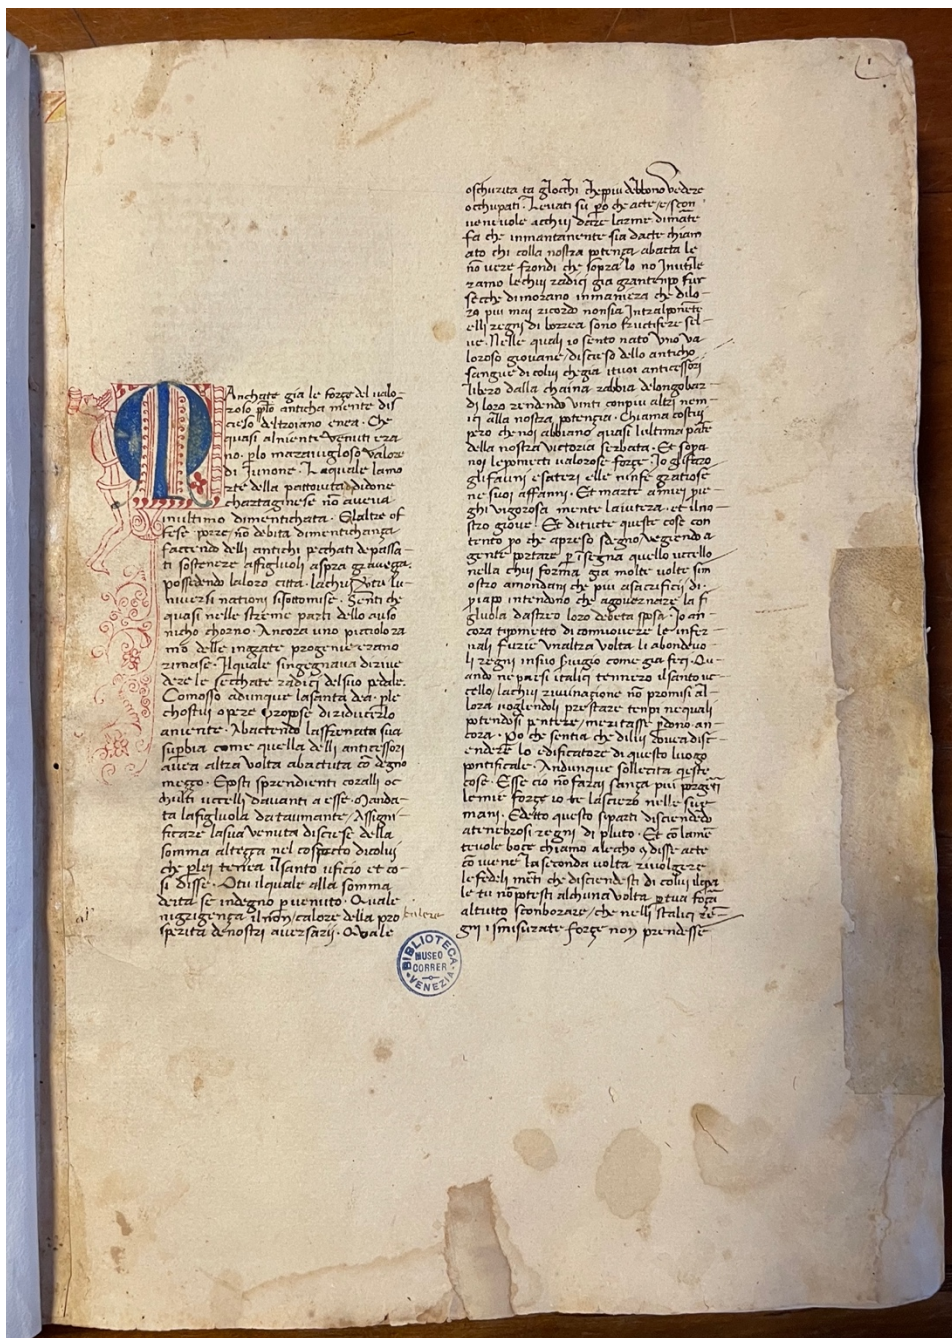 MAnchate gia le forze del ualo-
roso plo anticha mente dis
cieso deltroiano enea. Che
quasi alniente venuti era
no. plo maravigloso valore
di Iunone. Laquale lamo
rte della pattovita didone
chartaginese nō aveva
inultimo dimentichata. Elaltre of
fese porre nō debita dimentichanza
faccendo delli antichi pechati depassa-
ti sostenere affigliuoli aspra graveza.
possedendo laloro citta. lachui vtu lu-
niversi nationi sisottomise. Senti che
quasi nelle streme parti dello auso
nicho chorno. Ancora uno picciolo ra
mo delle ingrate progenie erano
rimase. Ilquale singegnava dirive
dere le secchate radici delsuo pedale.
Comosso adunque lasanta dea. ple
chostui opere propose diriducerlo
aniente. Abactendo lasfrenata sua
supbia come quella delli anticessori
avea altra volta abactuta cō degno
mezzo. Eposti sprendienti coralli oc
chulti uccelli davanti a esse. Manda-
ta lafigluola dataumante/ Assigni-
ficare lasua venuta discese della
somma alteza nel cospecto dicolui
che plei tenea ilsanto uficio et co-
si disse. Otu ilquale alla somma
deita se indegno puenuto. Quale
nigrigenza il non/ calore delia pro
sperita denostri aversarij. Quale
oschurita ta glochi cheppiu debbono vedere
occhupati. Levati su po che acte/e/scon
venevole acchui dare larme dimāte
fa che inmantanente sia dacte chiam
ato chi colla nostra potenza abacta le
nō vere frondi che sopra lo no Inutile
ramo lechui radici gia grantenpo fur
secche dimorano inmaniera che dilo-
ro piu mai ricordo nonsia Intralponēte
elli regni di borrea sono fructifere sel-
ue. Nelle quali io sento nato vno va
loroso giovane/ discieso dello anticho
sangue di colui chegia ituoi anticessori
libero dalla chaina rabbia delongobar-
di loro rendendo vinti conpiu altri nem
ici alla nostra potenzia. Chiama costui
pero che noi abbiano quasi lultima parte
della nostra victoria serbata. Et sopa
noi lepometti valorose forze. Io glifaro
glifauni esateri elle ninfe gratiose
ne suoi affanni. Et marte amiei prie
ghi vigorosa mente laiutera. et ilno-
stro giove. Et ditucte queste cose con
tento po che apreso sdegno/ vegiendo a
gente portare p insegna quello uccello
nella chui forma gia molte volte sim
ostro amondani che piu asacrificii di
priapo intendono che agovernare la fi
gluola dastreo loro debeta sposa. Io an-
cora tipmetto di comuovere le infer-
nali furie vnaltra volta li abondevo-
li regni insuo fuvgio come gia feci. Qu-
ando ne parsi italici tennero ilsanto uc-
cello/ lachui ruvinacione nō promisi al-
lora vogliendoli prestare tenpi nequali
potendosi pentere/ meritasse pdono an-
cora. Po che sentia che dillui dovea disc-
endere lo edificatore di questo luogo
pontificale. Andunque sollecita queste
cose. Esse cio nō farai sanza piu porgeri
lemie forze io te lascierō nelle sue
mani. Edetto questo siparti disciendedo
atenebrosi regni di pluto. Et cō lamē
tevole boce chiamo alecho & disse acte
cō viene la seconda volta rivolgere
le fedeli mēti che disciendesti di colui ilqua
le tu nō potesti alchuna volta p tua foza
altutto sconborare/ che nelli Italici re-
gni ismisurate forze non prendesse
BIBLIOTECA
MUSEO
CORRER
VENEZIA